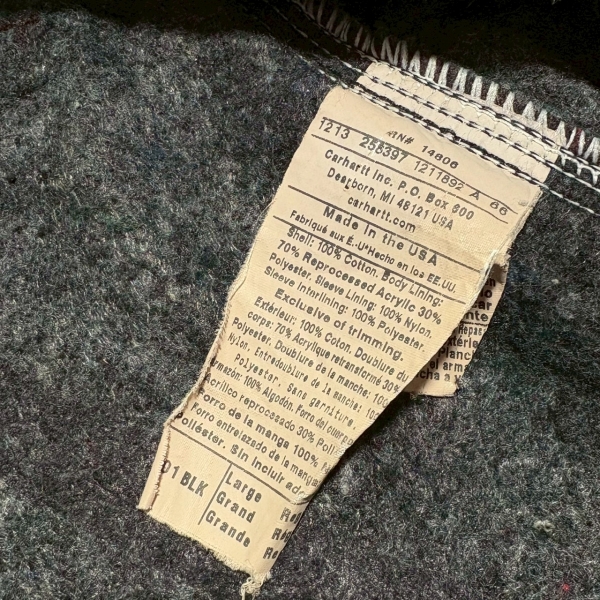 RN# 14806
1213 256397 1211892 A 66
Carhartt Inc. P.O. Box 600
Dearborn, MI 48121 USA
carhartt.com
Made in the USA
Fabriqué aux É.-U Hecho en los EE.UU.
Shell: 100% Cotton. Body Lining:
70% Reprocessed Acrylic 30%
Polyester. Sleeve Lining: 100% Nylon.
Sleeve Interlining: 100% Polyester.
Exclusive of trimming.
Extérieur: 100% Coton. Doublure du
corps: 70% Acrylique retransformé 30%
Polyester. Doublure de la manche: 100
Nylon. Entredoublure de la manche: 100
Polyester. Sans garniture.
Armazón: 100% Algodón. Forro del cuerpo
Acrílico reprocesado 30% Poli
Forro de la manga 100%
Forro entrelazado de la manga
Poliéster. Sin incluir
01 BLK
Large
Grand
Grande
Re